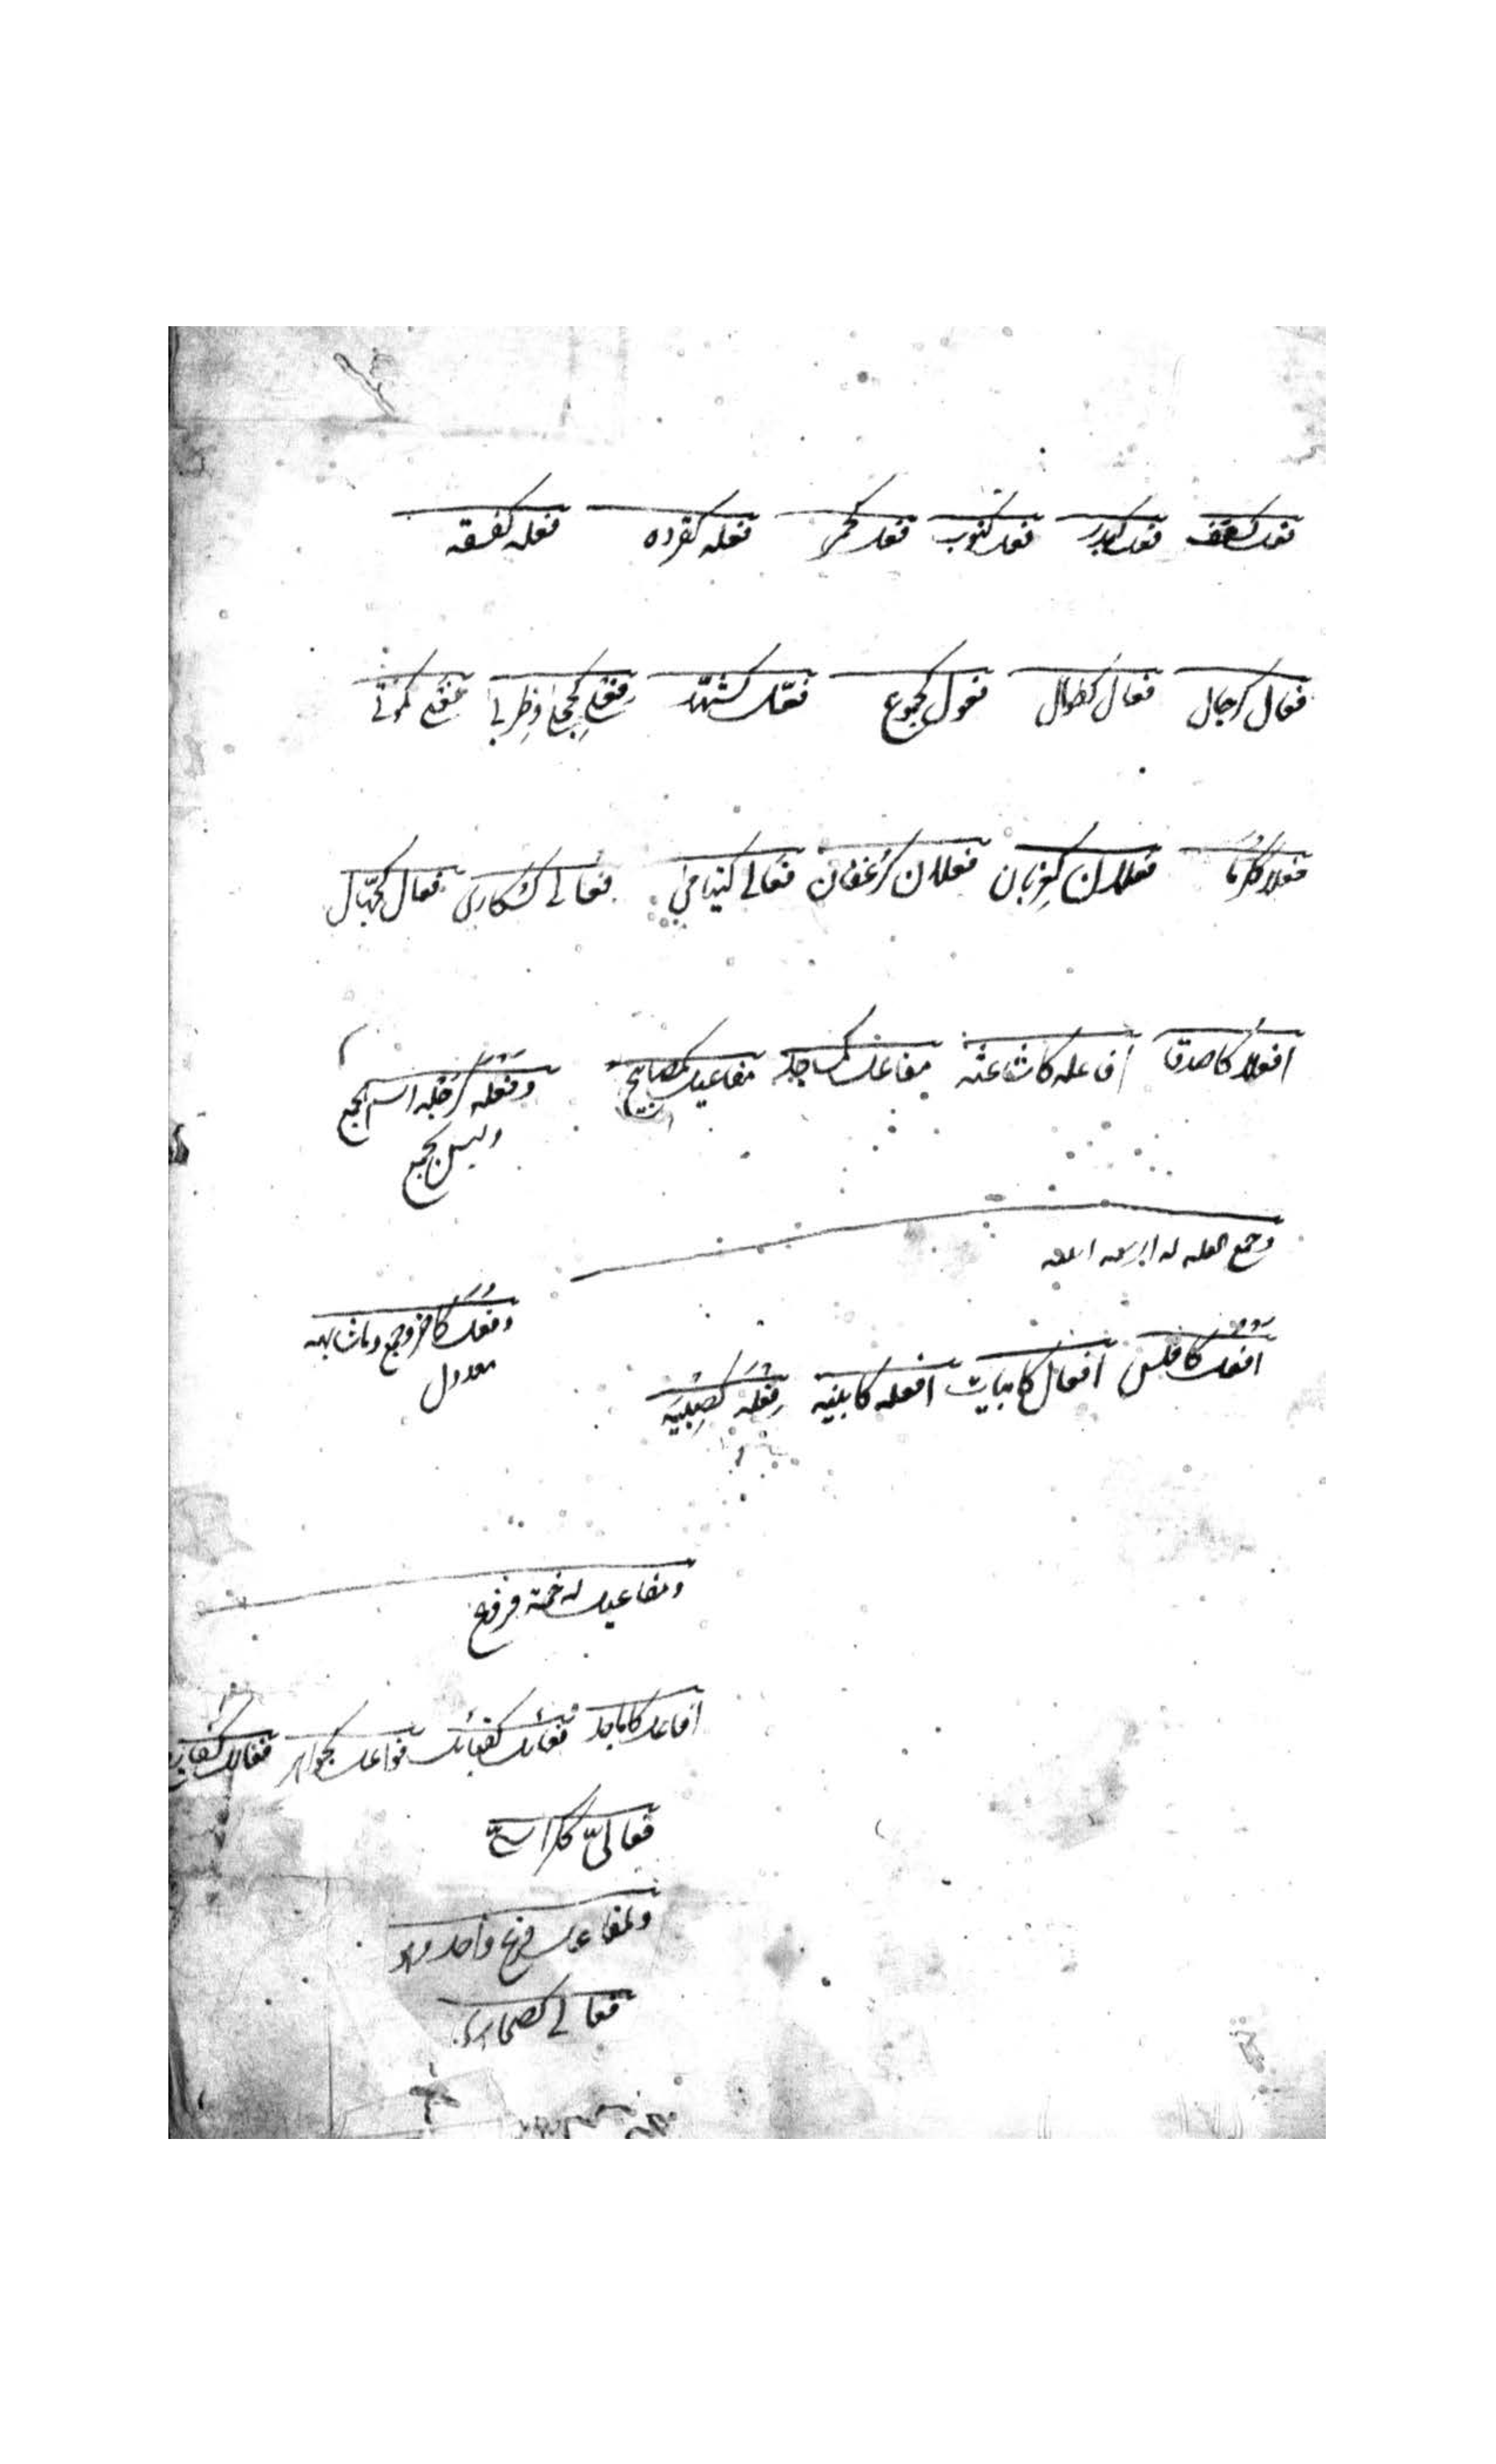 فعل كسقف فعل كبدر فعل كنوب فعل كحمر فعله كقرده فعله كفسقه
فعال كرجال فعال كطوال فعول كجموع فعّل كشهّد فِعْلى كحِجلى وظِربى فَعْلى كموتى
فعلا ككرما فعلان كغِزبان فعلان كرُغفان فعالى كيتامى فُعالى كسُكارى فعال كجهّال
افعلا كاصدقا افاعله كاشاعثه مفاعل كمساجد مفاعيل كمصابيح وفعله كرَجْلَه اسم الجمع
وليس بجمع
وجمع القله له اربعه ابنيه
افعل كافلس افعال كابيات افعله كابنيه فِعْلَه كصِبْيَه
وفُعَل كاُخَر وجُمَع وما شابهه
معدول
ومفاعيل له خمسة فروع
افاعل كاماجد فعائل كقبائل فواعل كجواهر فعالل
فعاليّ ككراسيّ
ولمفاعل فرع واحد وهو
فعالى كصحارى